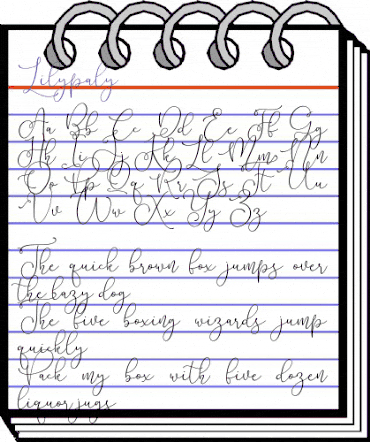 Lilypaly
Aa Bb Cc Dd Ee Ff Gg
Hh Ii Jj Kk Ll Mm Nn
Oo Pp Qq Rr Ss Tt Uu
Vv Ww Xx Yy Zz
The quick brown fox jumps over
the lazy dog
The five boxing wizards jump
quickly
Pack my box with five dozen
liquor jugs